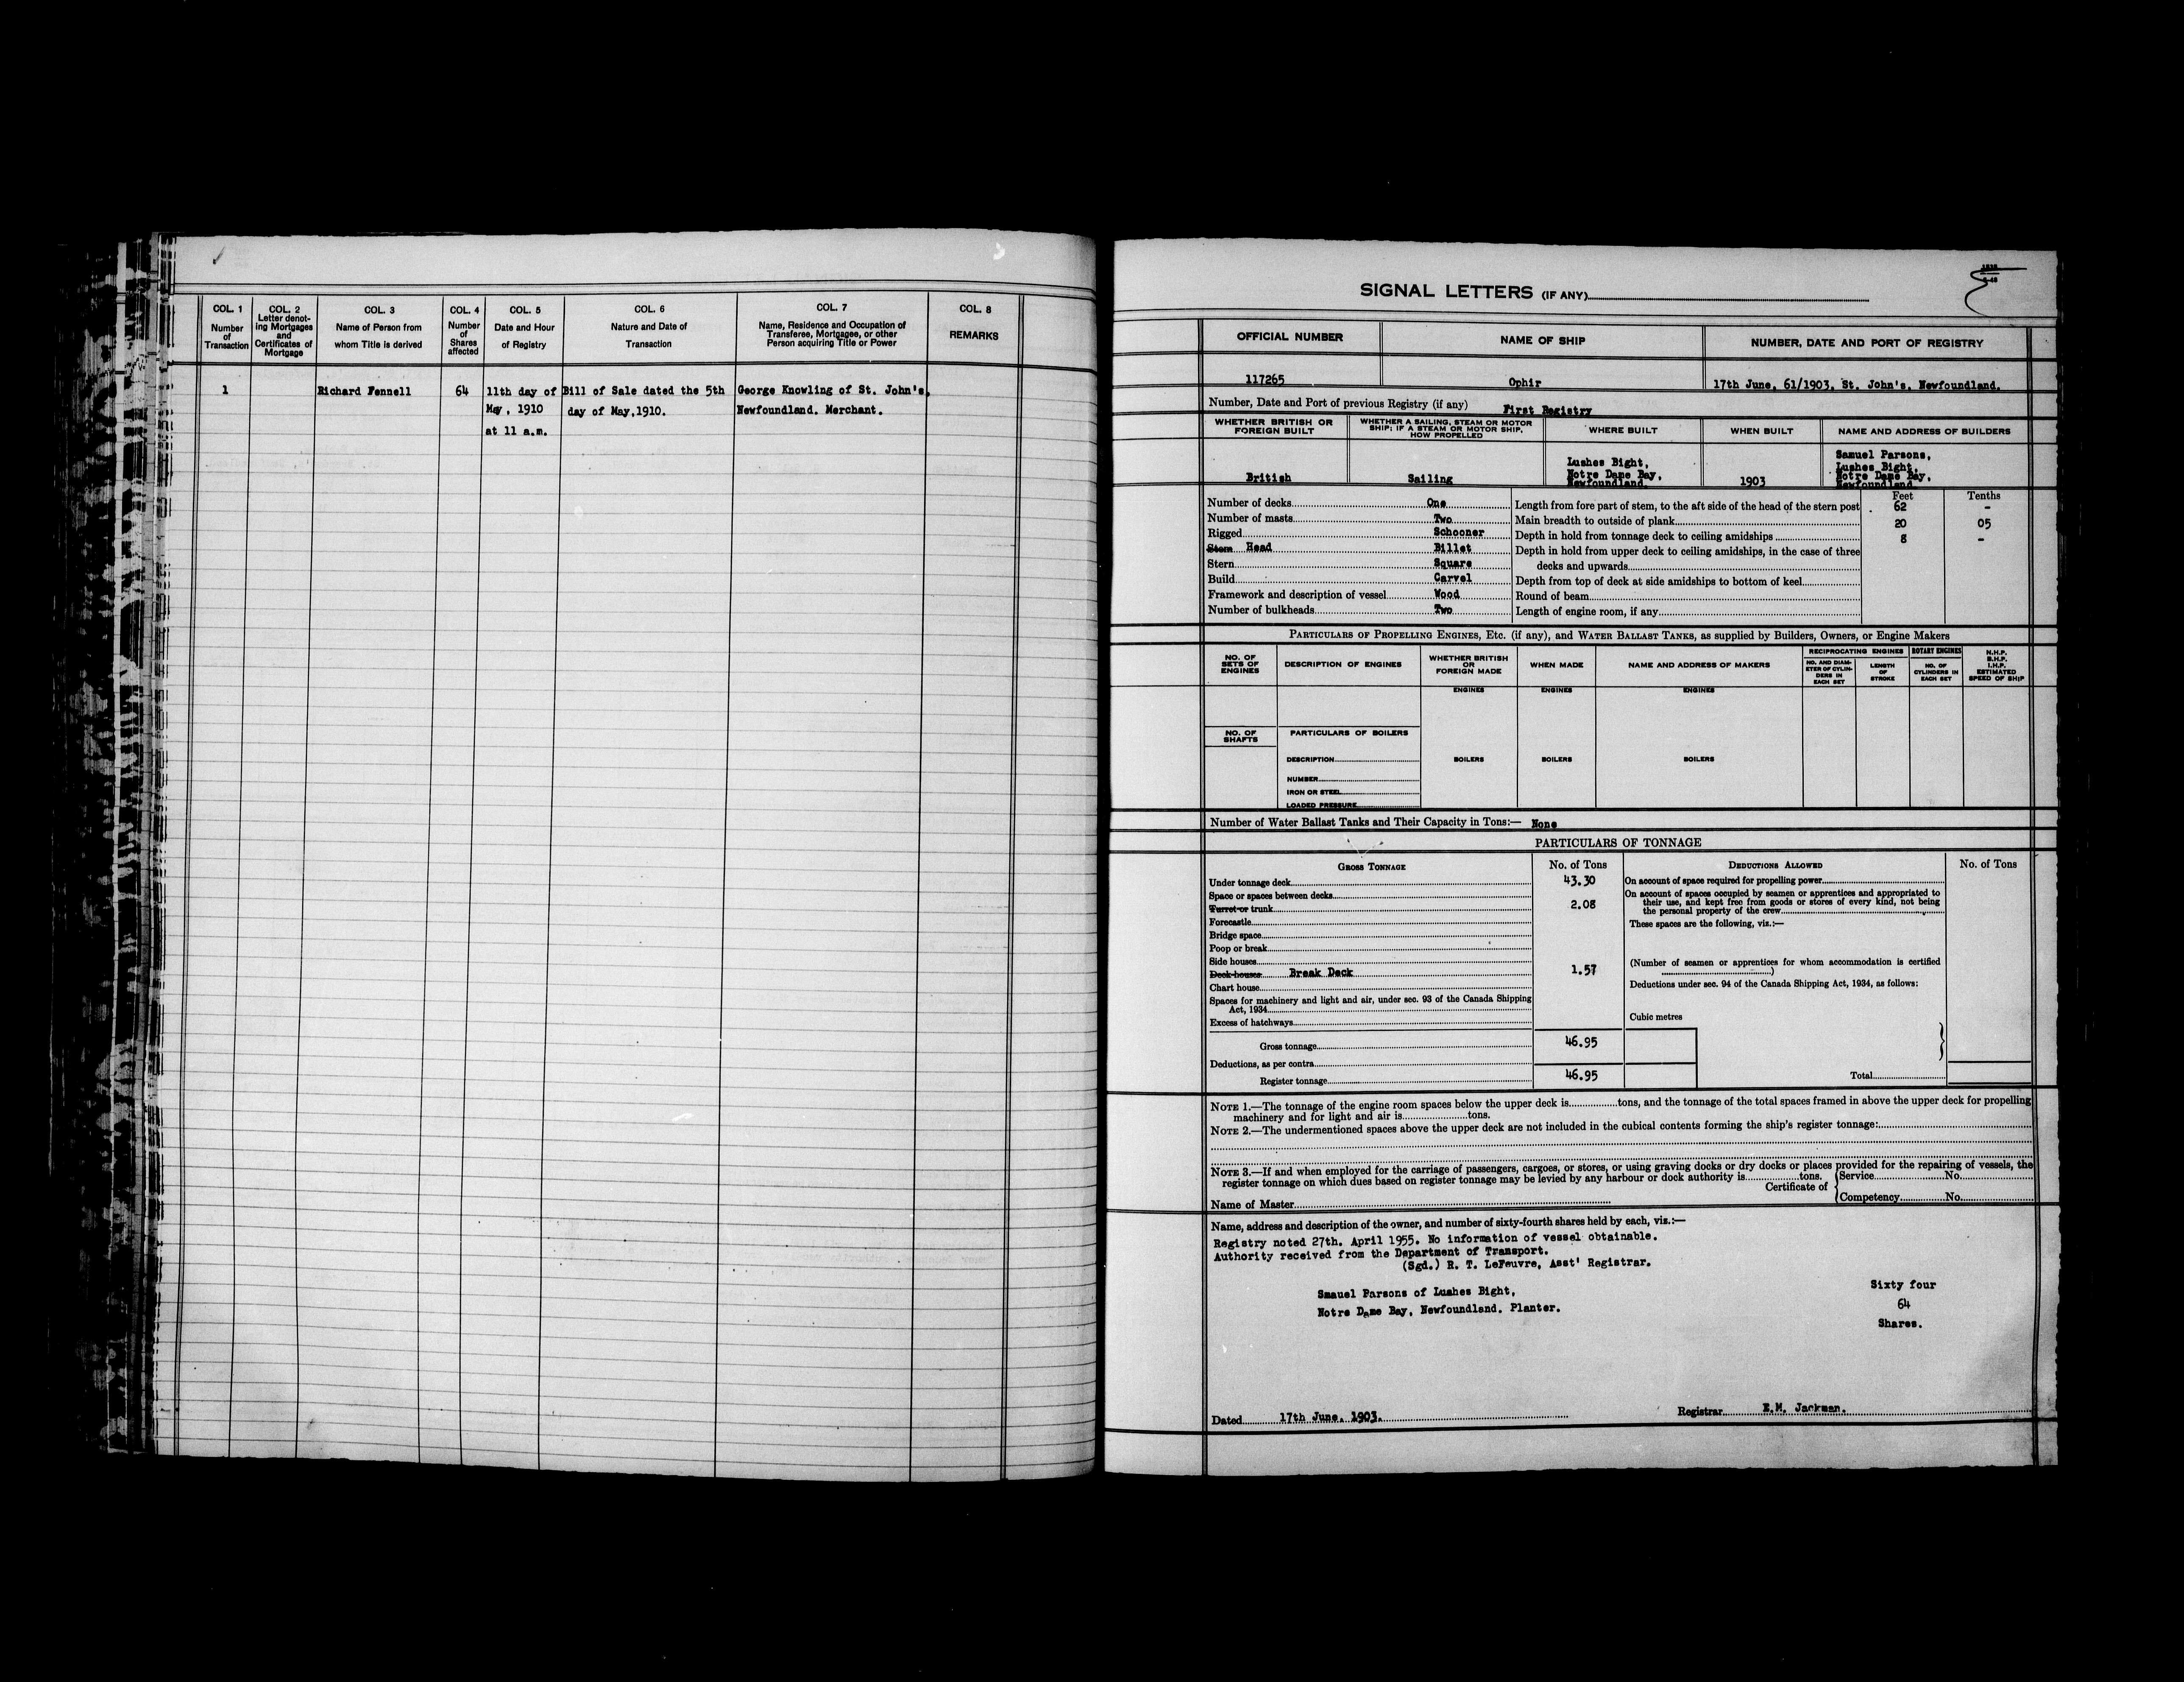 COL. 1
Number
of
Transaction
COL. 2
Letter denot-
ing Mortgages
and
Certificates of
Mortgage
COL. 3
Name of Person from
whom Title is derived
COL. 4
Number
of
Shares
affected
COL. 5
Date and Hour
of Registry
COL. 6
Nature and Date of
Transaction
COL. 7
Name, Residence and Occupation of
Transferee, Mortgagee, or other
Person acquiring Title or Power
COL. 8
REMARKS
1 Richard Fennell 64 11th day of Bill of Sale dated the 5th George Knowling of St. John's,
May, 1910 day of May,1910. Newfoundland. Merchant.
at 11 a.m.
SIGNAL LETTERS (IF ANY)
OFFICIAL NUMBER NAME OF SHIP NUMBER, DATE AND PORT OF REGISTRY
117265 Ophir 17th June, 61/1903, St. John's, Newfoundland.
Number, Date and Port of previous Registry (if any) First Registry
WHETHER BRITISH OR
FOREIGN BUILT
WHETHER A SAILING, STEAM OR MOTOR
SHIP; IF A STEAM OR MOTOR SHIP,
HOW PROPELLED
WHERE BUILT
WHEN BUILT
NAME AND ADDRESS OF BUILDERS
British
Sailing
Lushes Bight,
Notre Dame Bay,
Newfoundland.
1903
Samuel Parsons,
Lushes Bight,
Notre Dame Bay,
Newfoundland
Feet Tenths
Number of decks One Length from fore part of stem, to the aft side of the head of the stern post 62 -
Number of masts Two Main breadth to outside of plank 20 05
Rigged Schooner Depth in hold from tonnage deck to ceiling amidships 8 -
Stem Head Billet Depth in hold from upper deck to ceiling amidships, in the case of three
Stern Square decks and upwards
Build Carvel Depth from top of deck at side amidships to bottom of keel
Framework and description of vessel Wood Round of beam
Number of bulkheads Two Length of engine room, if any
PARTICULARS OF PROPELLING ENGINES, ETC. (if any), and WATER BALLAST TANKS, as supplied by Builders, Owners, or Engine Makers
NO. OF
SETS OF
ENGINES
DESCRIPTION OF ENGINES
WHETHER BRITISH
OR
FOREIGN MADE
WHEN MADE
NAME AND ADDRESS OF MAKERS
RECIPROCATING ENGINES
NO. AND DIAM-
ETER OF CYLIN-
DERS IN
EACH SET
LENGTH
OF
STROKE
ROTARY ENGINES
NO. OF
CYLINDERS IN
EACH SET
N.H.P.
B.H.P.
I.H.P.
ESTIMATED
SPEED OF SHIP
ENGINES ENGINES ENGINES
NO. OF
SHAFTS
PARTICULARS OF BOILERS
DESCRIPTION BOILERS BOILERS BOILERS
NUMBER
IRON OR STEEL
LOADED PRESSURE
Number of Water Ballast Tanks and Their Capacity in Tons:— None
PARTICULARS OF TONNAGE
GROSS TONNAGE No. of Tons DEDUCTIONS ALLOWED No. of Tons
Under tonnage deck 43.30
Space or spaces between decks
Turret or trunk 2.08
Forecastle
Bridge space
Poop or break
Side houses
Deck houses Break Deck 1.57
Chart house
Spaces for machinery and light and air, under sec. 93 of the Canada Shipping
Act, 1934
Excess of hatchways
Gross tonnage 46.95
Deductions, as per contra
Register tonnage 46.95
On account of space required for propelling power
On account of spaces occupied by seamen or apprentices and appropriated to
their use, and kept free from goods or stores of every kind, not being
the personal property of the crew
These spaces are the following, viz.:—
(Number of seamen or apprentices for whom accommodation is certified
)
Deductions under sec. 94 of the Canada Shipping Act, 1934, as follows:
Cubic metres
Total
NOTE 1.—The tonnage of the engine room spaces below the upper deck is tons, and the tonnage of the total spaces framed in above the upper deck for propelling
machinery and for light and air is tons.
NOTE 2.—The undermentioned spaces above the upper deck are not included in the cubical contents forming the ship's register tonnage:
NOTE 3.—If and when employed for the carriage of passengers, cargoes, or stores, or using graving docks or dry docks or places provided for the repairing of vessels, the
register tonnage on which dues based on register tonnage may be levied by any harbour or dock authority is tons.
Certificate of
Service No.
Competency No.
Name of Master
Name, address and description of the owner, and number of sixty-fourth shares held by each, viz.:—
Registry noted 27th. April 1955. No information of vessel obtainable.
Authority received from the Department of Transport.
(Sgd.) R. T. LeFeuvre, Asst' Registrar.
Smauel Parsons of Lushes Bight,
Notre Dame Bay, Newfoundland. Planter.
Sixty four
64
Shares.
Dated 17th June, 1903. Registrar E.M. Jackman.